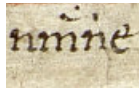 nm̃ine